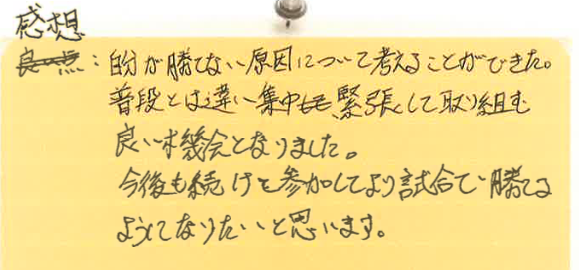 感想
良い点：自分が勝てない原因について考えることができた。
普段とは違い集中も緊張して取り組む
良い機会となりました。
今後も続けて参加してより試合で勝てる
ようになりたいと思います。